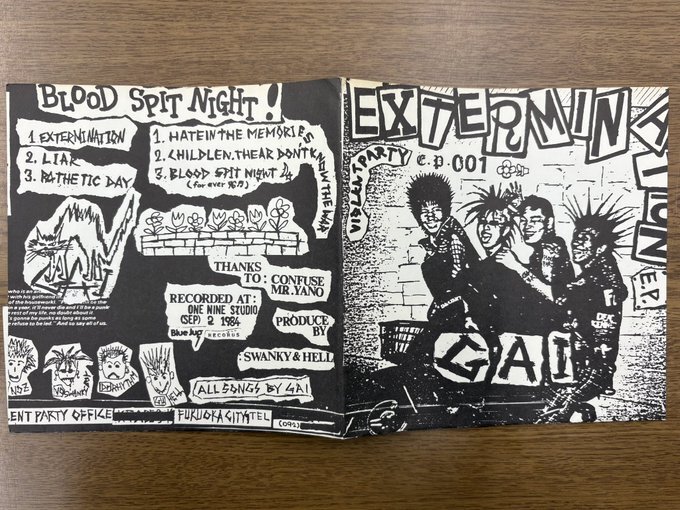 BLOOD SPIT NIGHT!
1. EXTERMINATION
2. LIAR
3. PATHETIC DAY
1. HATE IN THE MEMORIES
2. CHILDLEN. THEAR DONT KNOW THE WAR
3. BLOOD SPIT NIGHT 4
(for ever)
GAI
who is an
with his girlfriend
of the housework!
a year. it'll never die and I'll be a punk
rest of my life, no doubt about it.
's gonna be punks as long as some
refuse to be led." And so say all of us.
THANKS
TO: CONFUSE
MR. YANO
RECORDED AT:
ONE NINE STUDIO
(SEP) 2 1984
RECORDS
PRODUCE
BY
SWANKY & HELL
ALL SONGS BY GAI
ENT PARTY OFFICE
FUKUOKA CITY TEL
(092)
EXTERMIN
ATION E.P.
VIOLENT PARTY
e.p. 001
GAI